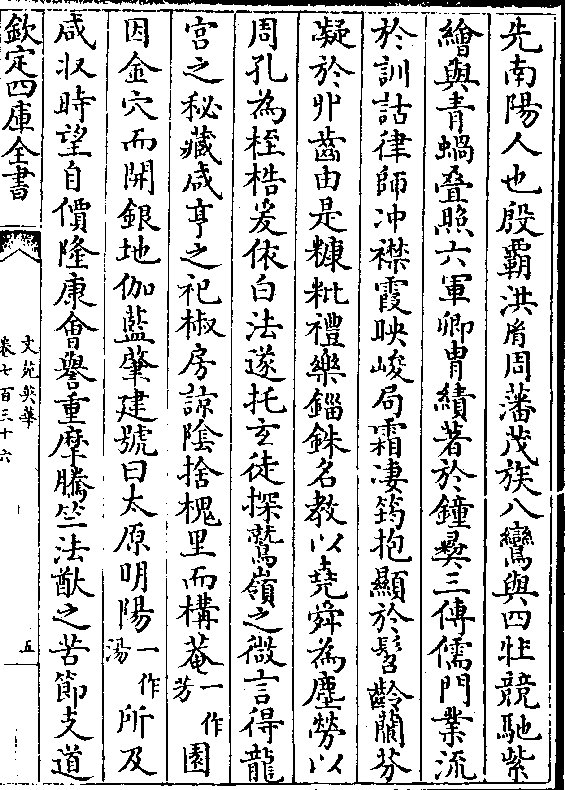 先南陽人也殷霸洪胄周藩茂族八鸞與四牡競馳紫
繪與青蝸疊照六軍卿胄績著於鐘彝三傳儒門業流
於訓詁律師冲襟霞映峻局霜凄筠抱顯於髫齡蘭芬
凝於丱齒由是糠粃禮樂錙銖名教以堯舜為塵勞以
周孔為桎梏爰依白法遂托玄徒探鷲嶺之微言得龍
宮之秘藏咸亨之祀椒房諒陰捨槐里而構菴一作芳園
因金穴而開銀地伽藍肇建號曰太原明陽一作湯所及
咸收時望自價隆康會譽重摩騰竺法猷之苦節支道
欽定四庫全書
文苑英華
卷七百三十六
五